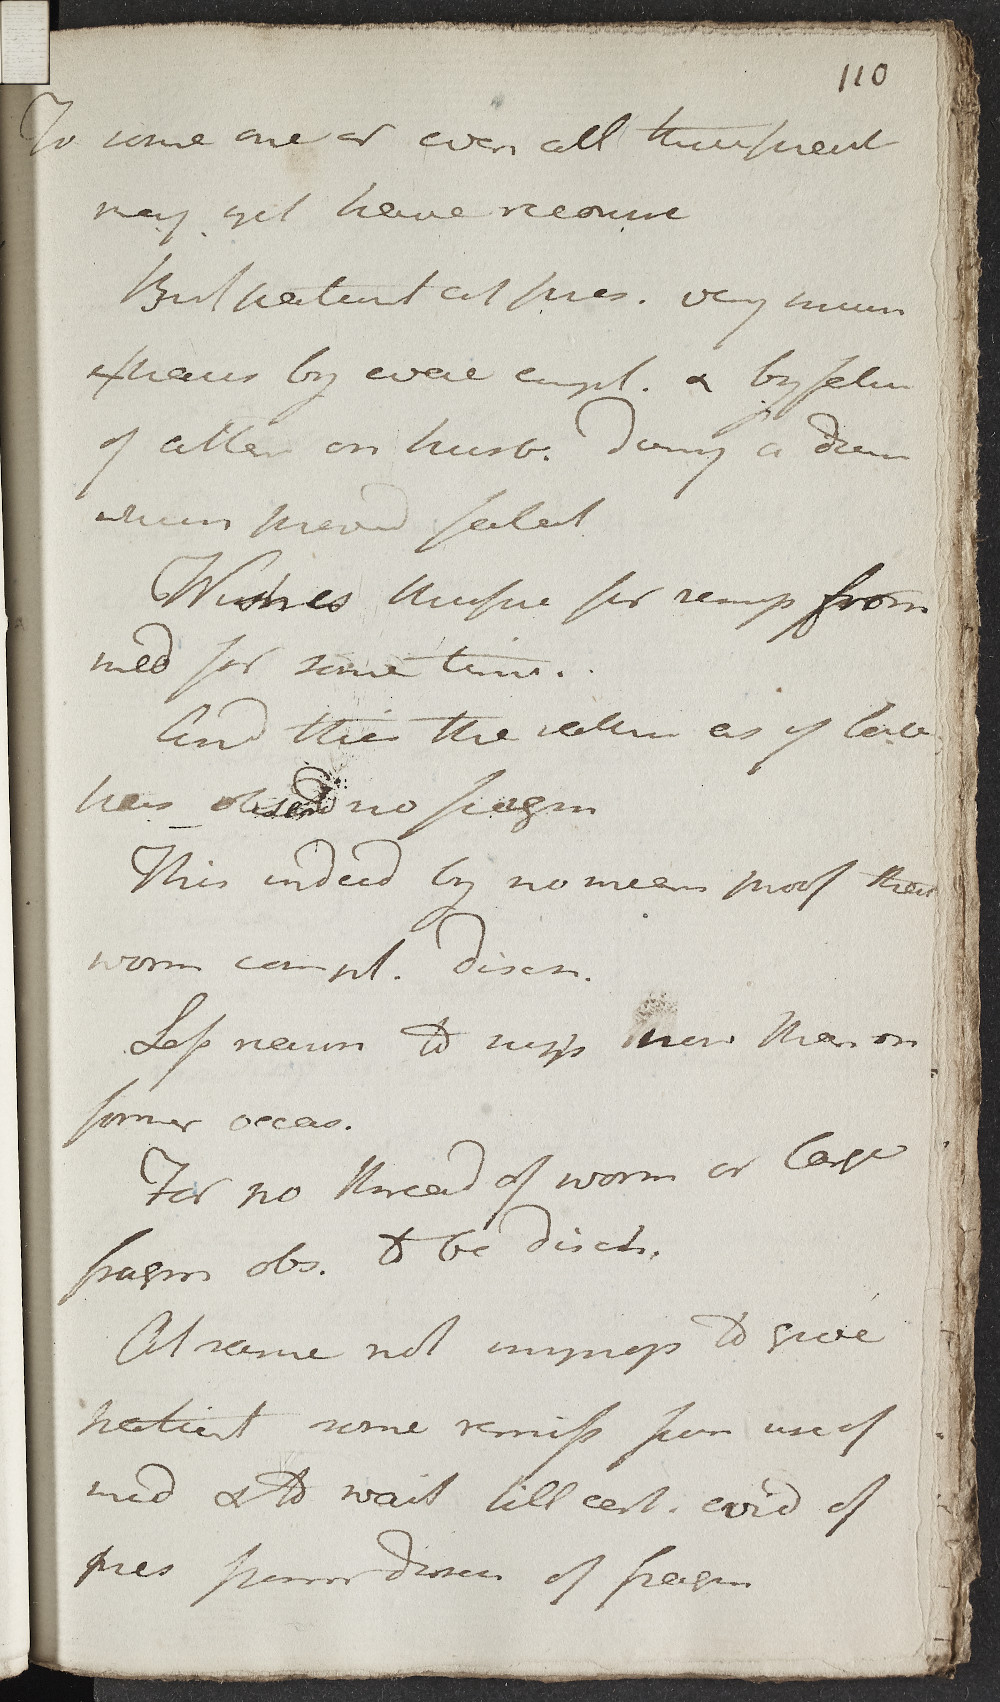 110
To some one or even all these patient
may yet have recourse
But patient at pres. very much
exhaus by evac empl. & by
of atten on husb. During a
which proved fatal
Wishes therefore for remiss from
med for some time.
And this the rather as of late
has observd no fragm
This indeed by no means proof that
worm compl. disch.
Less reason to supp now than on
former occas.
For no thread of worm or large
fragm obs. to be disch.
At same not improp to give
patient some remiss from use of
med & to wait till cert. evid of
pres from disch of fragm